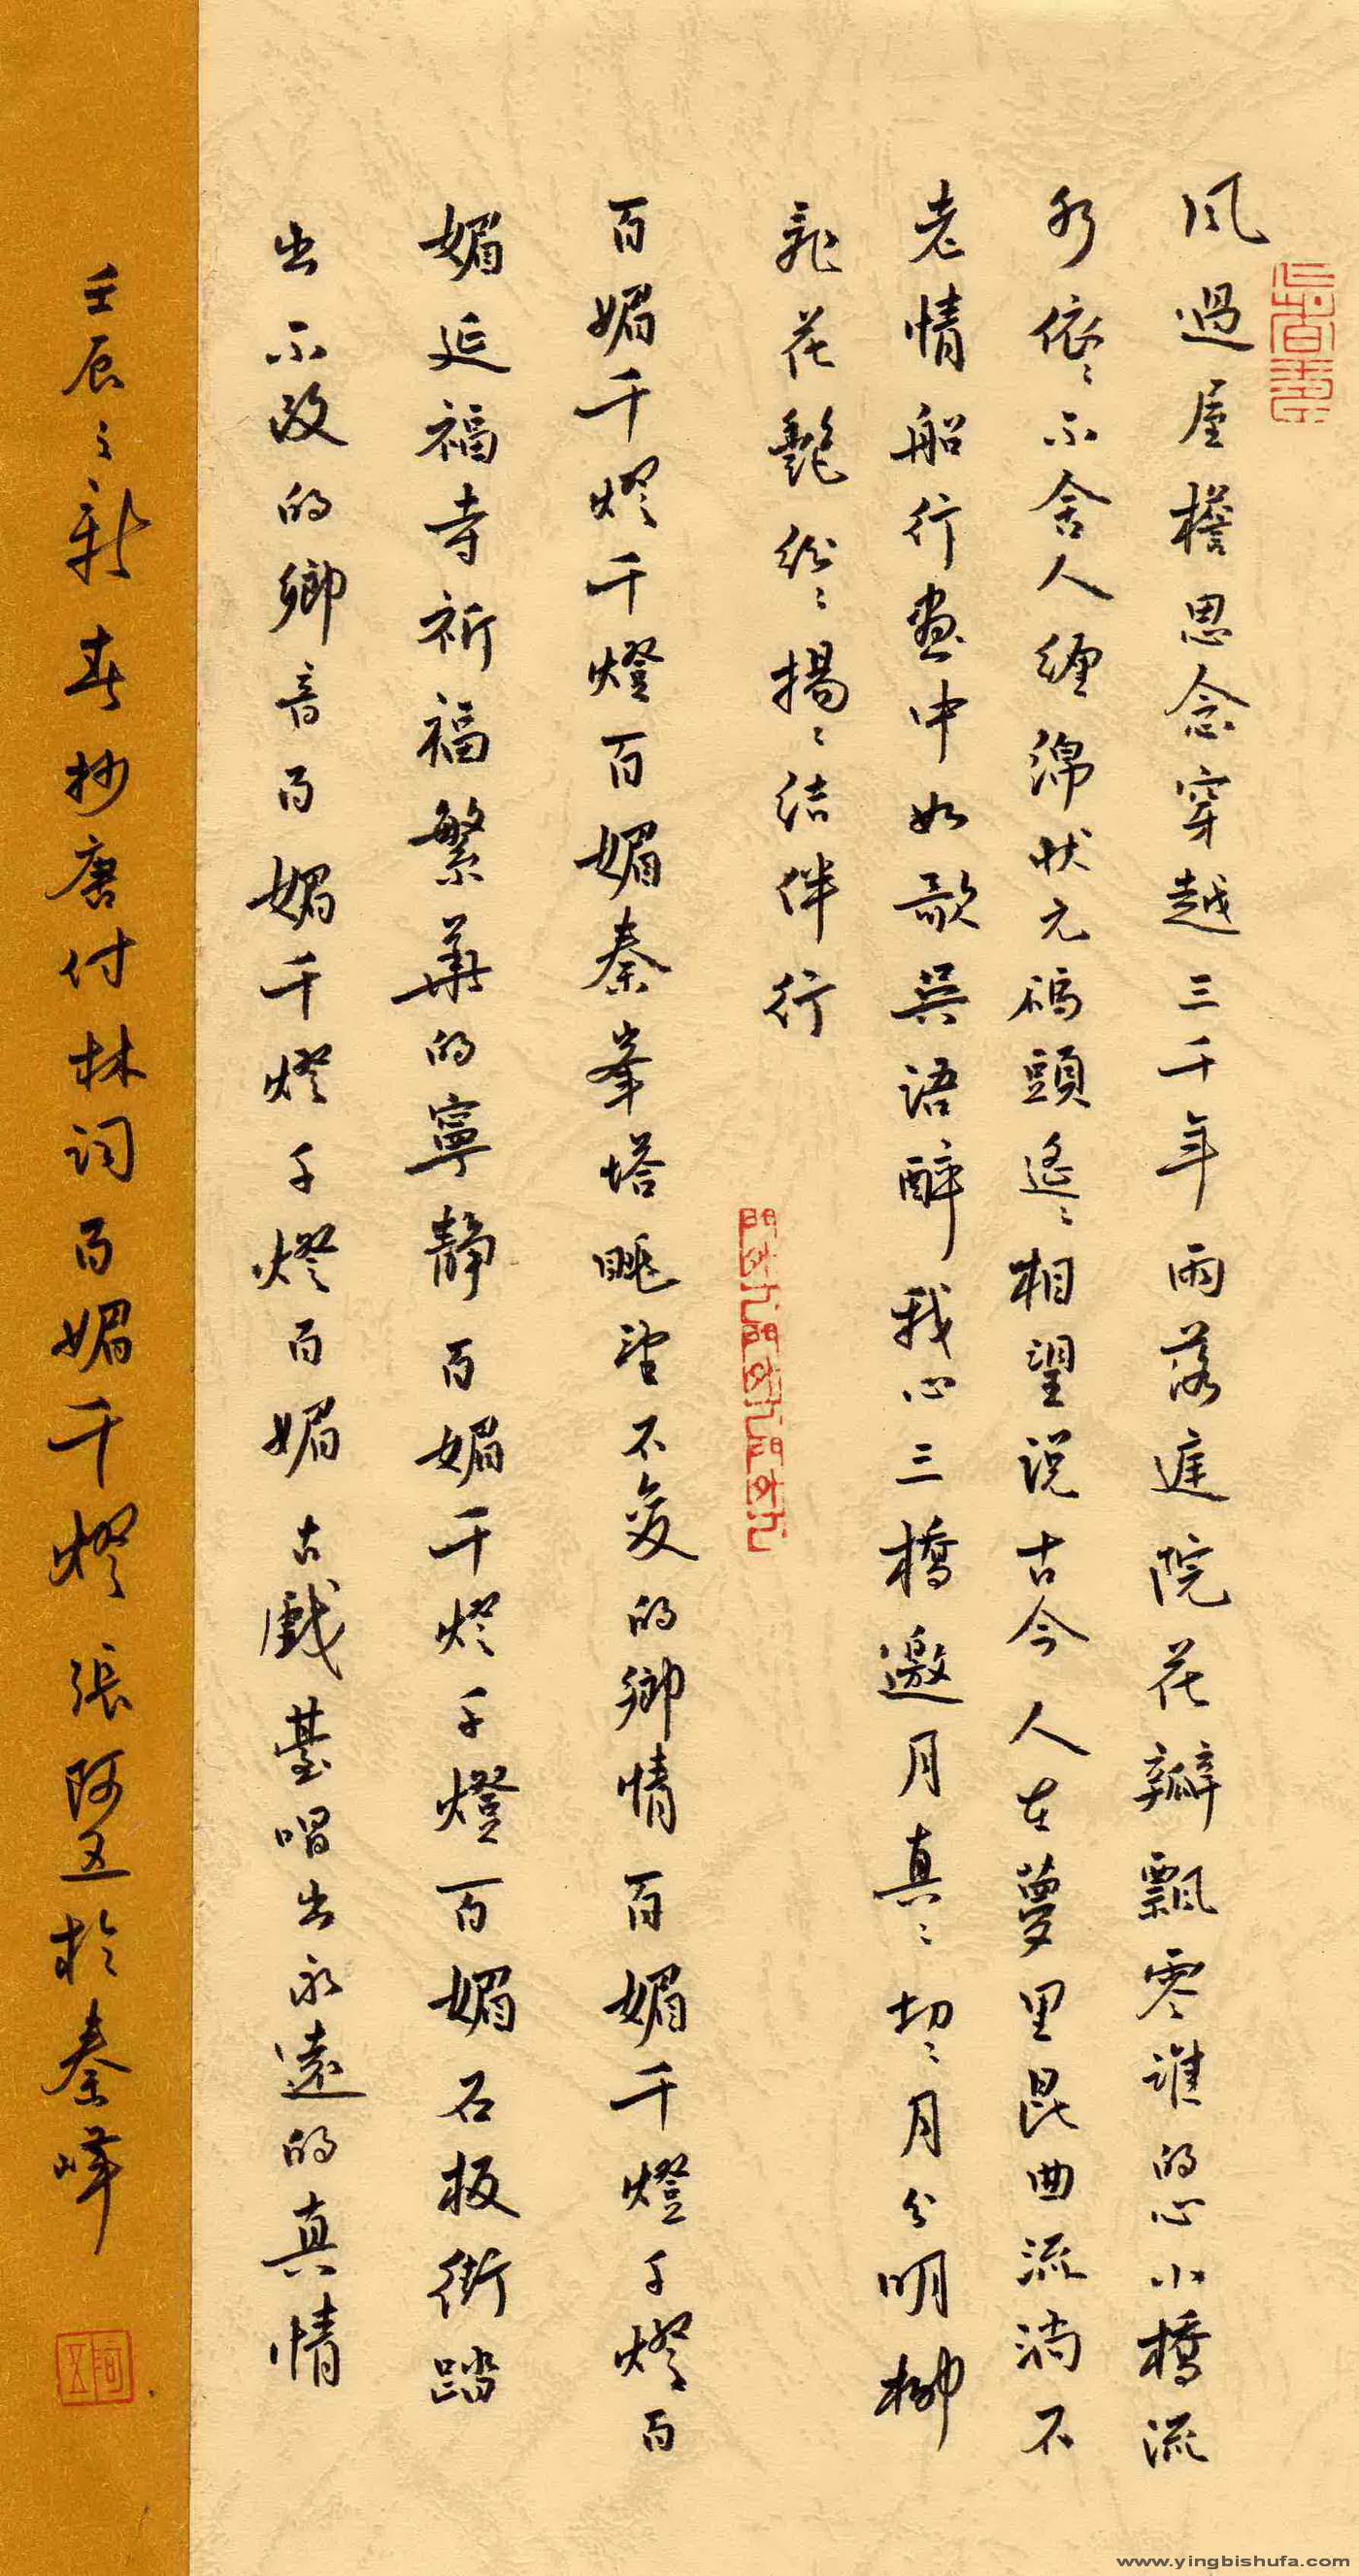 风過屋檐思念穿越三千年雨落庭院花瓣飘零谁的心小橋流
水依依不舍人缠绵状元码頭遥遥相望说古今人在夢里昆曲流淌不
老情船行画中如歌吴语醉我心三橋邀月真真切切月分明柳
飛花艷纷纷揚揚结伴行
百媚千燈千燈百媚秦峯塔眺望不变的鄉情百媚千燈千燈百
媚延福寺祈福繁華的寧静百媚千灯千燈百媚石板街踏
出不改的鄉音百媚千燈千燈百媚古戲臺唱出永遠的真情
壬辰之新春抄唐付林词百媚千燈張阿五於秦峰
www.yingbishufa.com